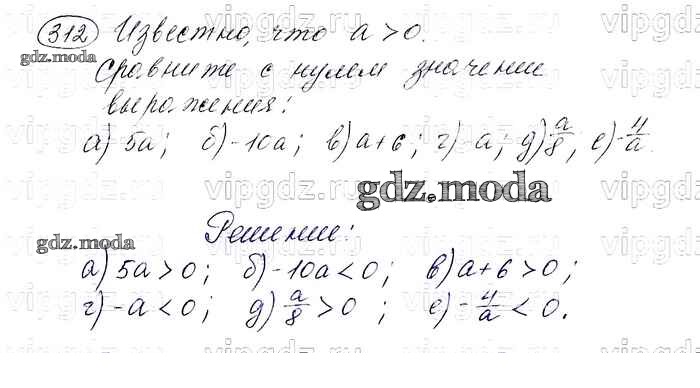 312 Известно, что a > 0.
gdz.moda
сравните с нулем значении
выражения:
а) 5a; б) -10a; в) a+6; г) -a; д) a/8; е) -4/a.
gdz.moda
Решение:
gdz.moda
а) 5a > 0; б) -10a < 0; в) a+6 > 0;
г) -a < 0; д) a/8 > 0; е) -4/a < 0.
vipgdz.ru vipgdz.ru vipgdz.ru vipgdz.ru